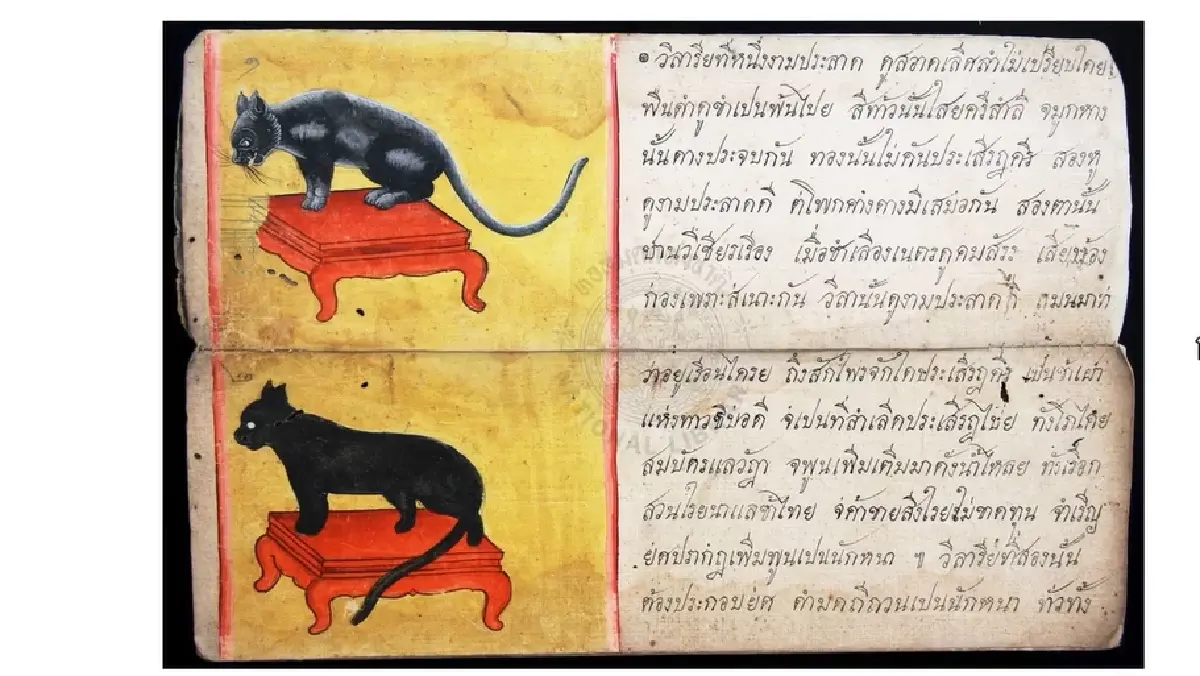 ๏ วิลารียที่หนึ่งงามประลาค ดูสลาคเลิศล้ำไม่เปรียบใดย
พื้นดำดูขำเปนพ้นไปย สีทั่วนั้นใสยดังสำลี จมูกหาง
นั้นคางประจบกัน ทองนั้นไม่คันประเสีรฎดี สองหู
ดูงามประลาคดี ต่างคางมีเสมอกัน สองตานั้น
ปานวิเชียรเรือง เมื่อชำเลืองเนตรดูคมสัรร เสียงร้อง
ก้องเพราะสเนาะกัน วิลานั้นดูงามประลาคดี
อยู่เรือนใดรย ถึงศักไพรจักได้ประเสีรฎดี เปนข้าเผ่า
แห่งท้าวธิบอดี จเปนที่ล้ำเลิศประเสีรฎไปย ทั้งโภไคย
สมบัดรแลวัฎา จพูนเพิ่มเติมมาดังน้ำไหลย ทั้งเรือก
สวนไรยนาแลข้าไทย จค้าขายสิ่งไรยไม่ขาดทุน จำเริญ
ยศปรากฎเพิ่มพูนเปนนักหนา ฯ วิลารีย์ที่สองนั้น
ต้องประกอบยศ ดำมดถี่ถวนเปนนักหนา ทั่วทั้ง